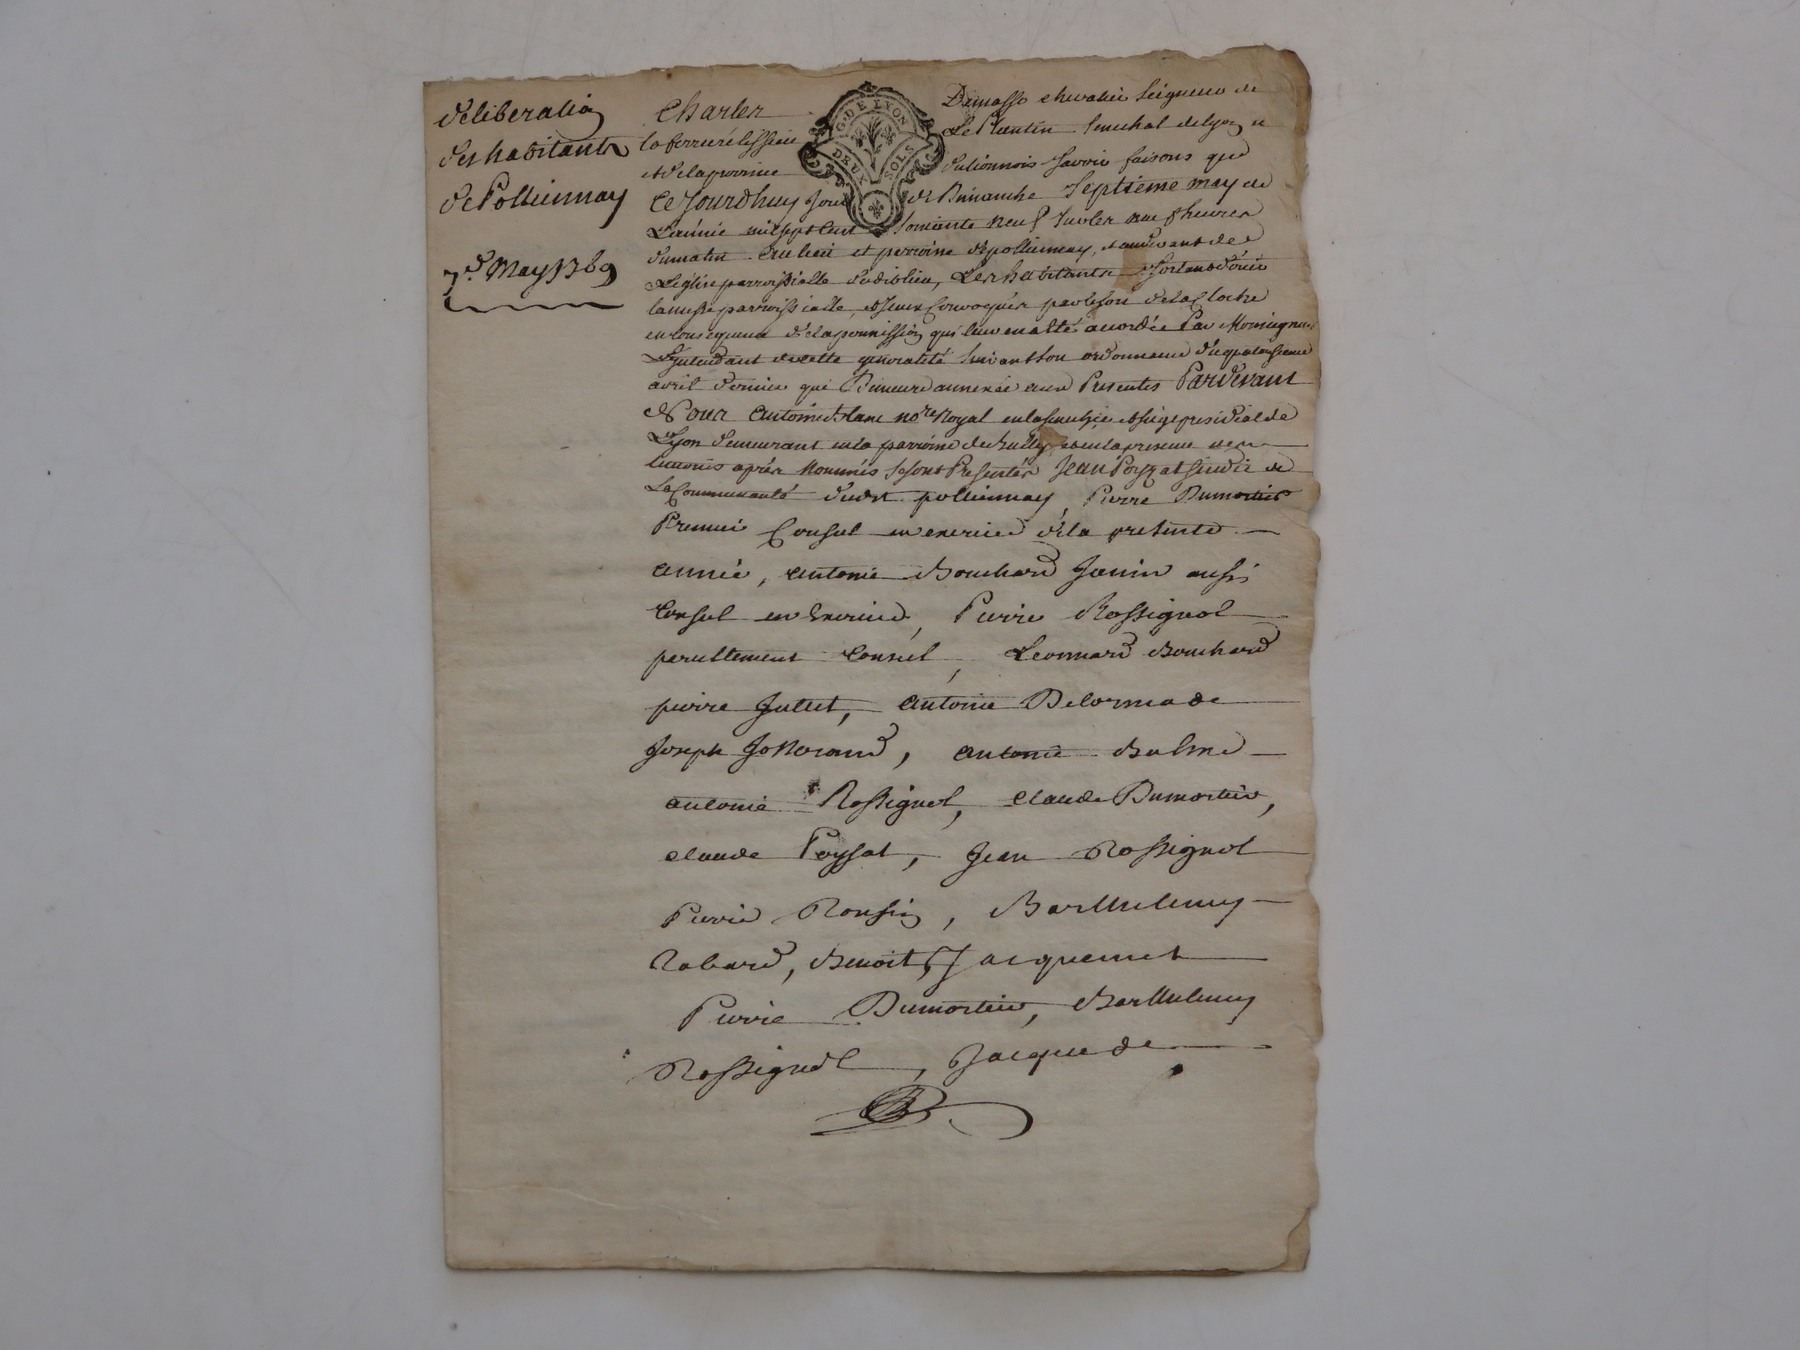 deliberation
des habitants
de Pollionnay
7.e May 1769
G. DE LYON
DEUX SOLS
Charles Demasso chevalier Seigneur de
la ferriere lissieu Le Plantin Senechal de lyon et
et de la province du lionnois Savoir faisons que
Ce Jourdhuy Jour de Dimanche Septieme may de
L'année mil sept Cent Soixante neuf Sur les neuf heures
du matin au lieu et parroisse de pollionnay, et audevant de
L'église parroissialle dudit lieu, Les habitants Sortans d'ouir
la messe parroissialle, et Iceux Convoqués par le son de la Cloche
en consequence de la permission qui leur en a été accordée Par Monseigneur
L'Intendant de cette generalité Suivant son ordonnance du quatorzieme
avril dernier qui Demeure annexée aux Presentes Pardevant
Nous Antoine Blanc no.re Royal en la senechée et siege presidial de
Lyon demeurant en la parroisse de et en la presence des
temoins après Nommés Se sont Presentés Jean Poyzat sindic de
La Communauté dudit pollionnay, Pierre Dumortier
Premier Consul en exercice de la presente
année, antoine Bouchard Janin aussi
Consul en Exercice, Pierre Rossignol
pareillement Consul, Leonnard Bouchard
pierre Jullet, antoine Delorme de
Joseph Jossерand, antoine Balme
antoine Rossignol, claude Dumortier,
claude Poyzat, Jean Rossignol
Pierre Ronzin, Barthelemy
Rabard, Benoit Jacquemet
Pierre Dumortier, Barthelemy
Rossignol, Jacque de